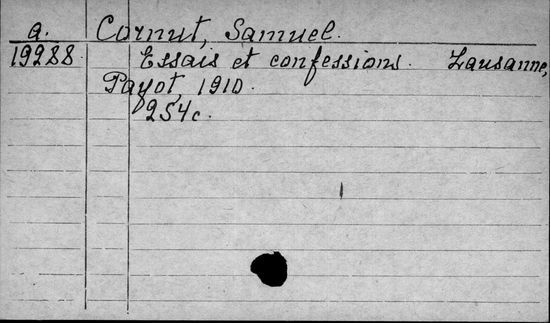 a. Cornut, Samuel.
19288 Essais et confessions. Lausanne,
Payot, 1910.
254c.